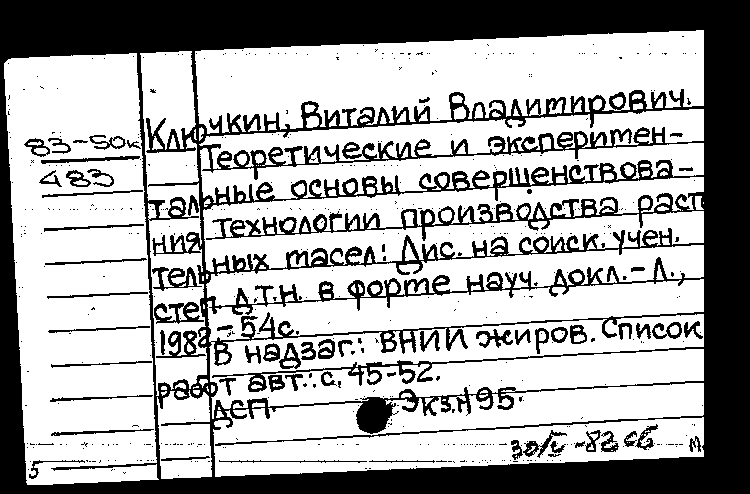 83-50к
483
Ключкин, Виталий Владимирович.
Теоретические и эксперимен-
тальные основы совершенствова-
ния технологии производства расти
тельных масел: Дис. на соиск. учен.
степ. д.т.н. в форме науч. докл.-Л.,
1982.-54с.
В надзаг.: ВНИИ жиров. Список
работ авт.: с. 45-52.
ДСП. Экз.№95.
30/V -83 сб М.
5